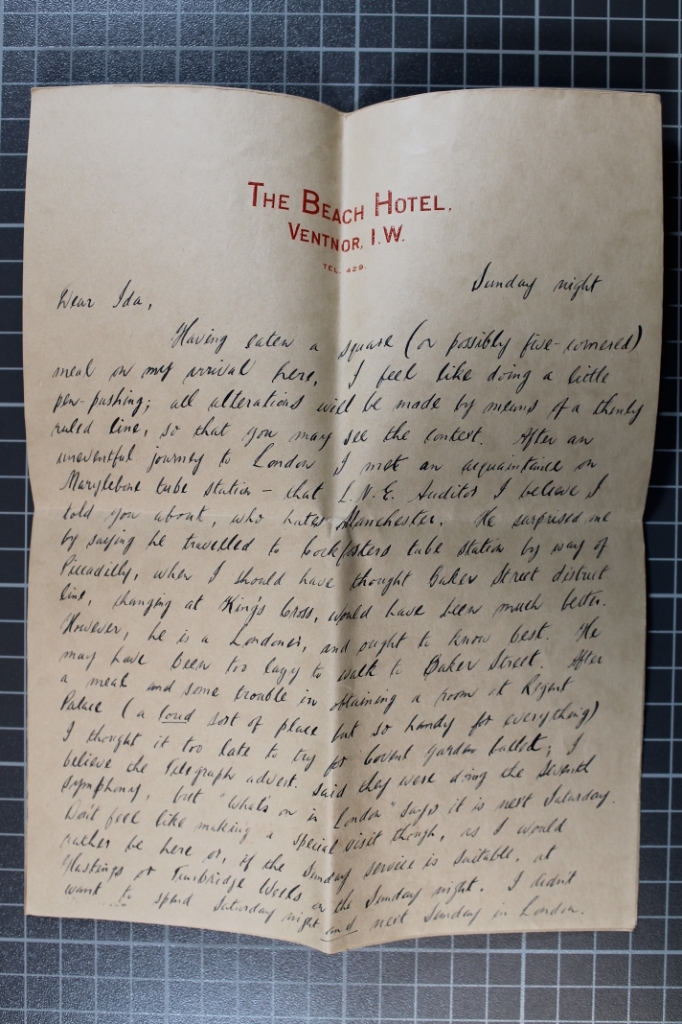 THE BEACH HOTEL,
VENTNOR, I.W.
TEL. 429.
Sunday night
Dear Ida,
Having eaten a square (or possibly five-cornered)
meal on my arrival here, I feel like doing a little
pen-pushing; all alterations will be made by means of a thinly
ruled line, so that you may see the context. After an
uneventful journey to London I met an acquaintance on
Marylebone tube station – that L.N.E. Auditor I believe I
told you about, who hates Manchester. He surprised me
by saying he travelled to Cockfosters tube station by way of
Piccadilly, when I should have thought Baker Street district
line, changing at King's Cross, would have been much better.
However, he is a Londoner, and ought to know best. He
may have been too lazy to walk to Baker Street. After
a meal and some trouble in obtaining a room at Regent
Palace (a loud sort of place but so handy for everything)
I thought it too late to try for Covent Garden ballet; I
believe the Telegraph advert. said they were doing the Seventh
Symphony, but "What's on in London" says it is next Saturday.
Don't feel like making a special visit though, as I would
rather be here or, if the Sunday service is suitable, at
Hastings or Tunbridge Wells on the Sunday night. I didn't
want to spend Saturday night and next Sunday in London.